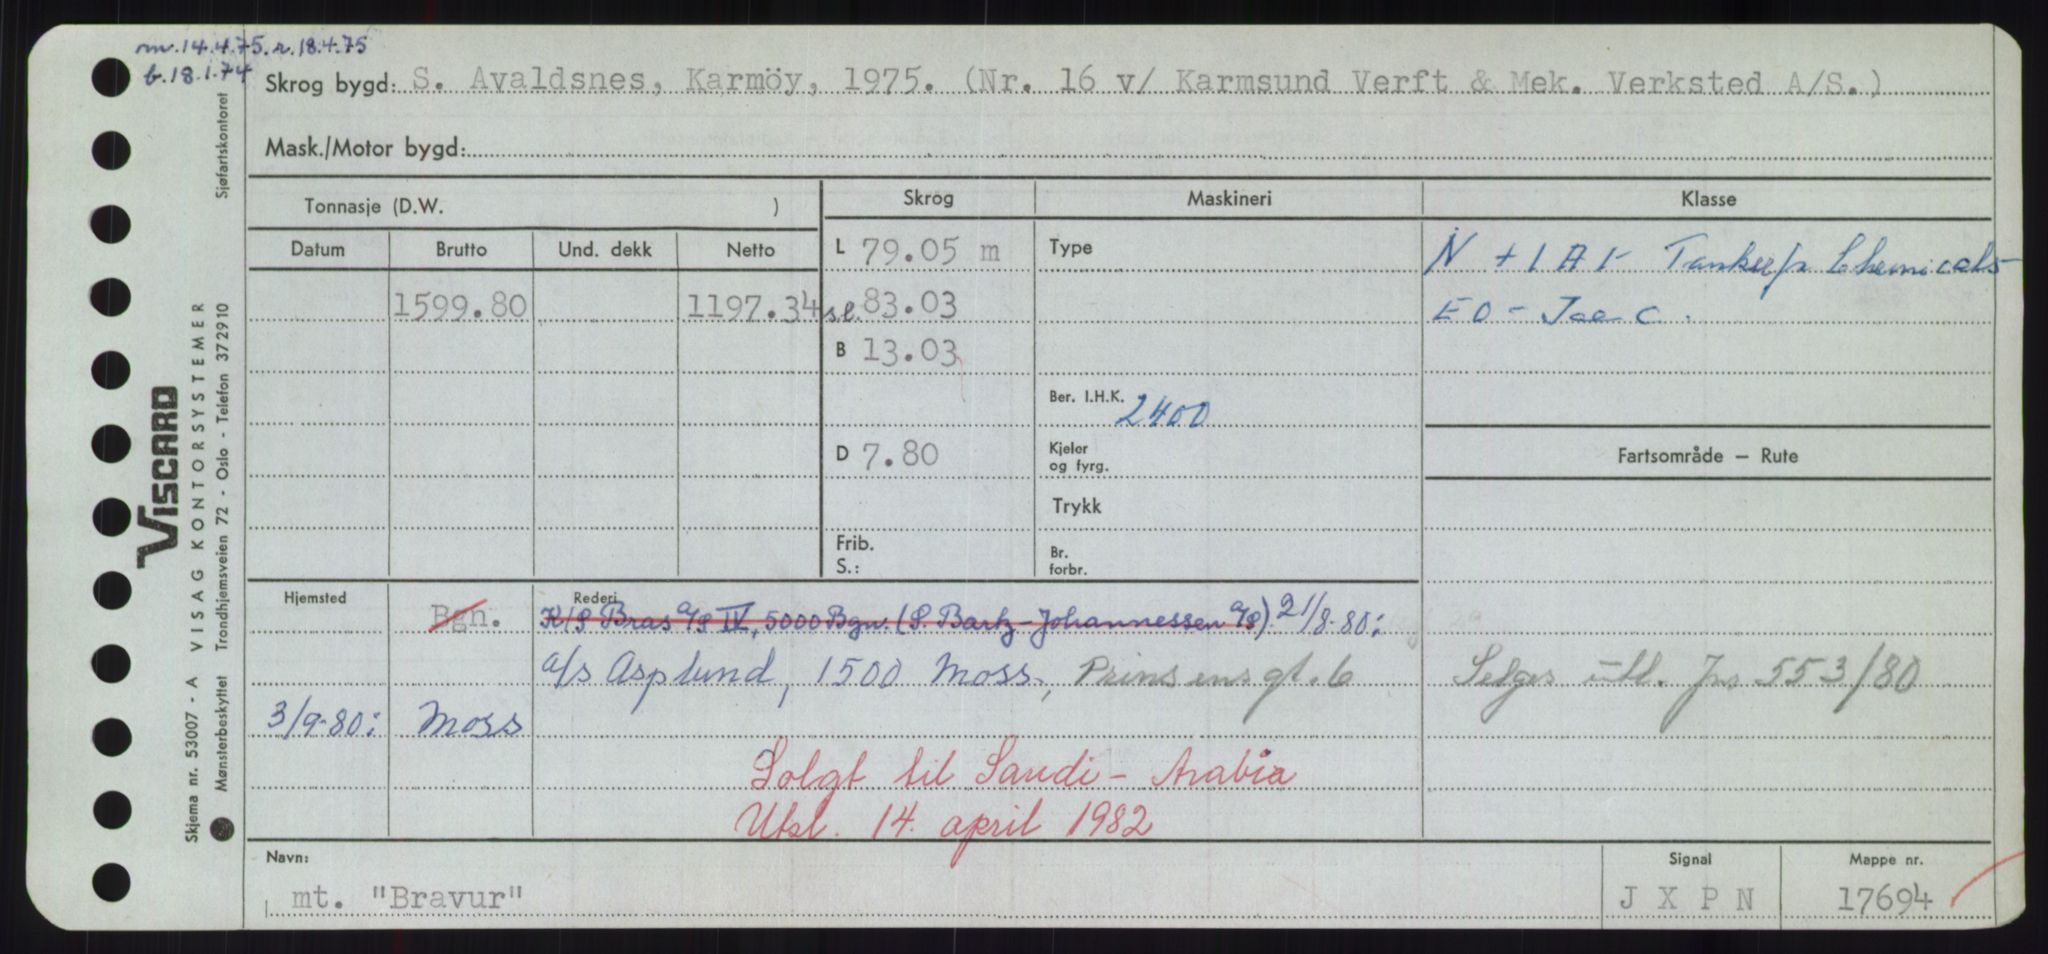 m. 14.4.75. r. 18.4.75
b. 18.1.74
Skrog bygd: S. Avaldsnes, Karmöy, 1975. (Nr. 16 v/ Karmsund Verft & Mek. Verksted A/S.)
Mask./Motor bygd:
Tonnasje (D.W. )
Skrog
Maskineri
Klasse
Datum
Brutto
Und. dekk
Netto
L 79.05 m
Type
N + 1A1- Tankskip Chemicals
1599.80
1197.34
s.l. 83.03
E0 - Ice C.
B 13.03
Ber. I.H.K. 2400
D 7.80
Kjeler
og fyrg.
Fartsområde — Rute
Trykk
Frib.
S.:
Br.
forbr.
Hjemsted
Bgn.
Rederi
K/S Bras A/S IV, 5000 Bgn. (S. Bartz-Johannessen A/S) 21/8-80:
A/s Asplund, 1500 Moss., Prinsensgt. 6
Selges utl. Jnr 553/80
3/9-80:
Moss
Solgt til Saudi-Arabia
Utsl. 14. april 1982
Navn:
mt. "Bravur"
Signal
J X P N
Mappe nr.
17694
VISCARD
Skjema nr. 53007 - A VISAG KONTORSYSTEMER
Mønsterbeskyttet Trondhjemsveien 72 - Oslo - Telefon 372910
Sjøfartskontoret